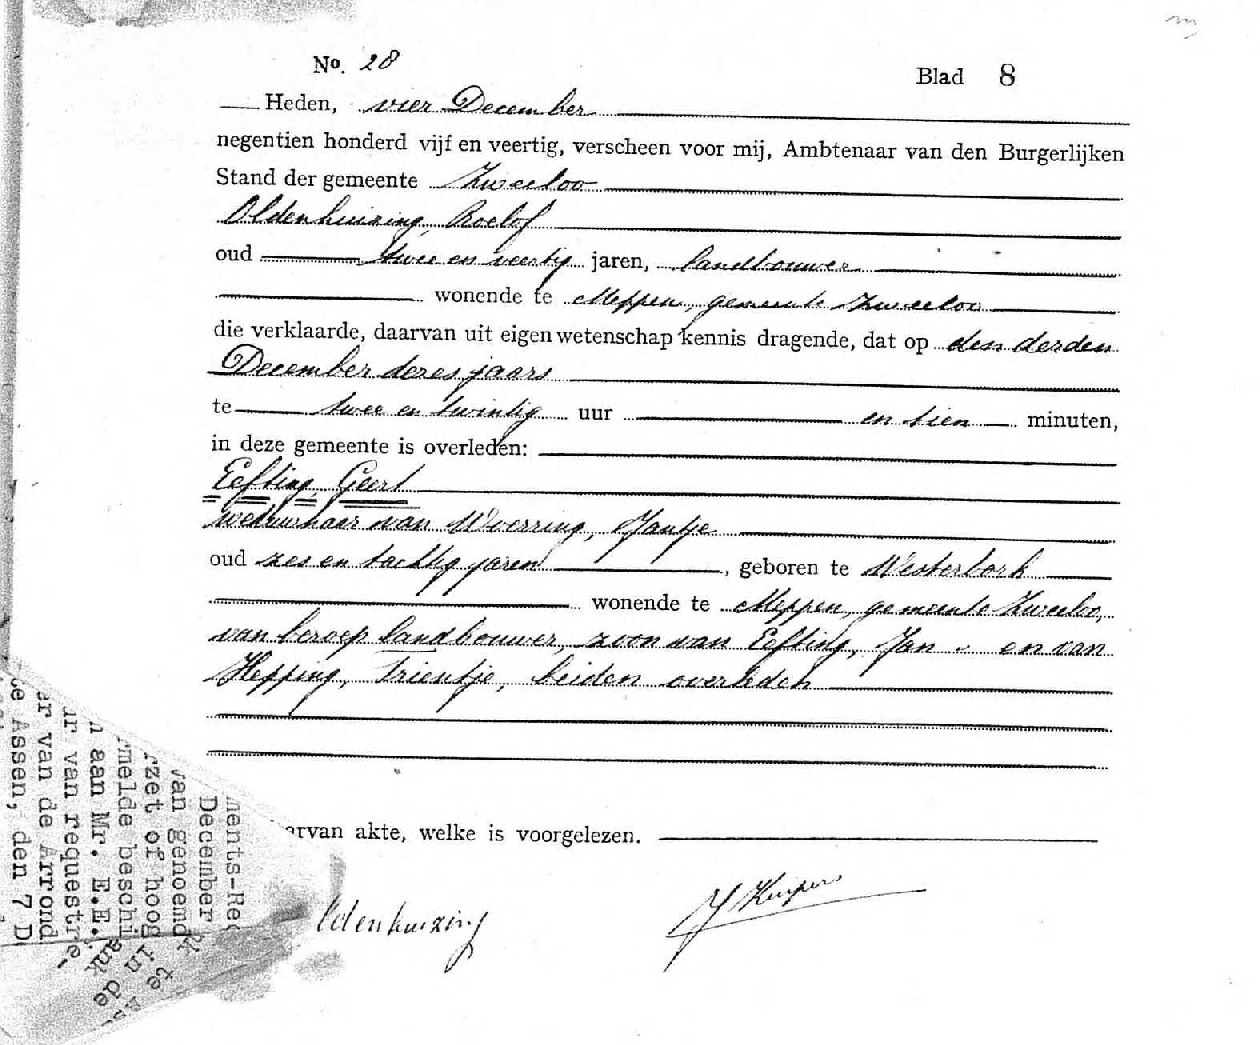 No. 28
Blad 8
Heden, vier December
negentien honderd vijf en veertig, verscheen voor mij, Ambtenaar van den Burgerlijken
Stand der gemeente Zweeloo
Oldenhuizing, Roelof
oud twee en veertig jaren, landbouwer
wonende te Meppen, gemeente Zweeloo
die verklaarde, daarvan uit eigen wetenschap kennis dragende, dat op den derden
December dezes jaars
te twee en twintig uur en tien minuten,
in deze gemeente is overleden:
Eefting, Geert
weduwnaar van Woerring, Jantje
oud zes en tachtig jaren, geboren te Westerbork
wonende te Meppen, gemeente Zweeloo,
van beroep landbouwer, zoon van Eefting, Jan en van
Hepping, Trientje, beiden overleden
ervan akte, welke is voorgelezen.
ldenhuizing
J Kuipers
ments-Rec
December
van genoemd
rzet of hoog
rmelde beschi
n aan Mr. E.E.
ur van requestre
er van de Arrond
te Assen, den 7 D
k te
in de
ank